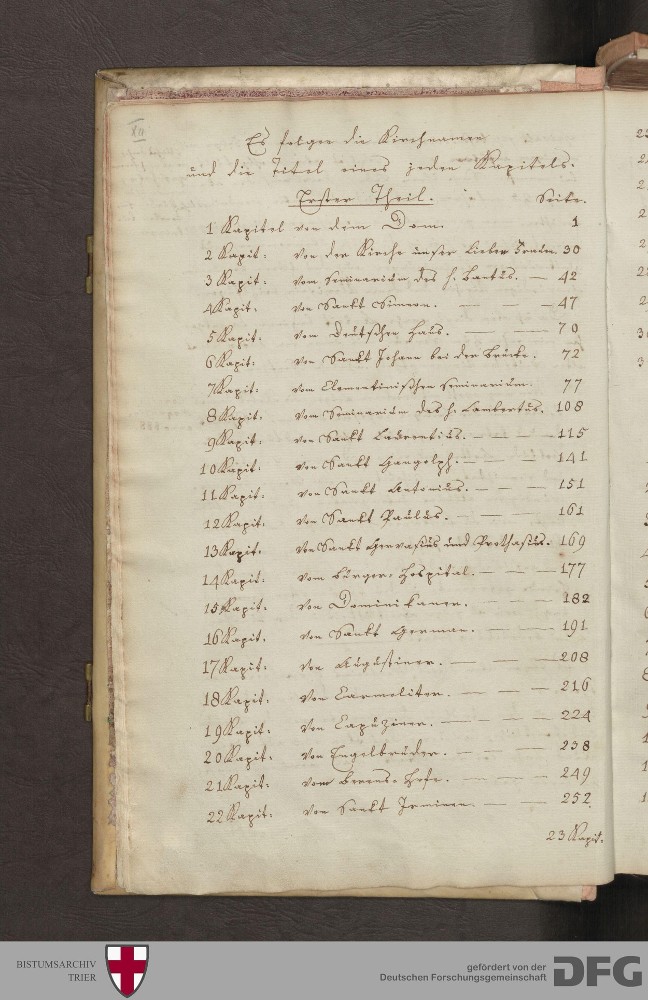 XII
Es folgen die Kirchnamen
und die Titel eines jeden Kapitels.
Erster Theil. Seite.
1 Kapitel von dem Dom. 1
2 Kapit: von der Kirche unser lieber Frauen. 30
3 Kapit: vom Seminarium des h. Bantus. — 42
4 Kapit: von Sankt Simeon. — — — 47
5 Kapit: vom Deutschen Haus. — — 70
6 Kapit: von Sankt Johann bei der Brücke. 72
7 Kapit: vom Clementinischen Seminarium. 77
8 Kapit. vom Seminarium des h. Lambertus. 108
9 Kapit: von Sankt Laurentius. — — — 115
10 Kapit: von Sankt Gangolph. — — — 141
11 Kapit: von Sankt Antonius. — — — 151
12 Kapit. von Sankt Paulus. — — — 161
13 Kapit. von Sankt Gervasius und Prothasius. 169
14 Kapit: vom Bürger-Hospital. — — — 177
15 Kapit: von Dominikaner. — — 182
16 Kapit. von Sankt German. — — — 191
17 Kapit: von Augustiner. — — — 208
18 Kapit: von Carmeliter. — — — 216
19 Kapit: von Capuziner. — — — 224
20 Kapit: von Engelbrüder. — — — 238
21 Kapit: vom Berens-Hofe. — — — 249
22 Kapit: von Sankt Irminen. — — 252.
23 Kapit:
BISTUMSARCHIV
TRIER
gefördert von der
Deutschen Forschungsgemeinschaft
DFG